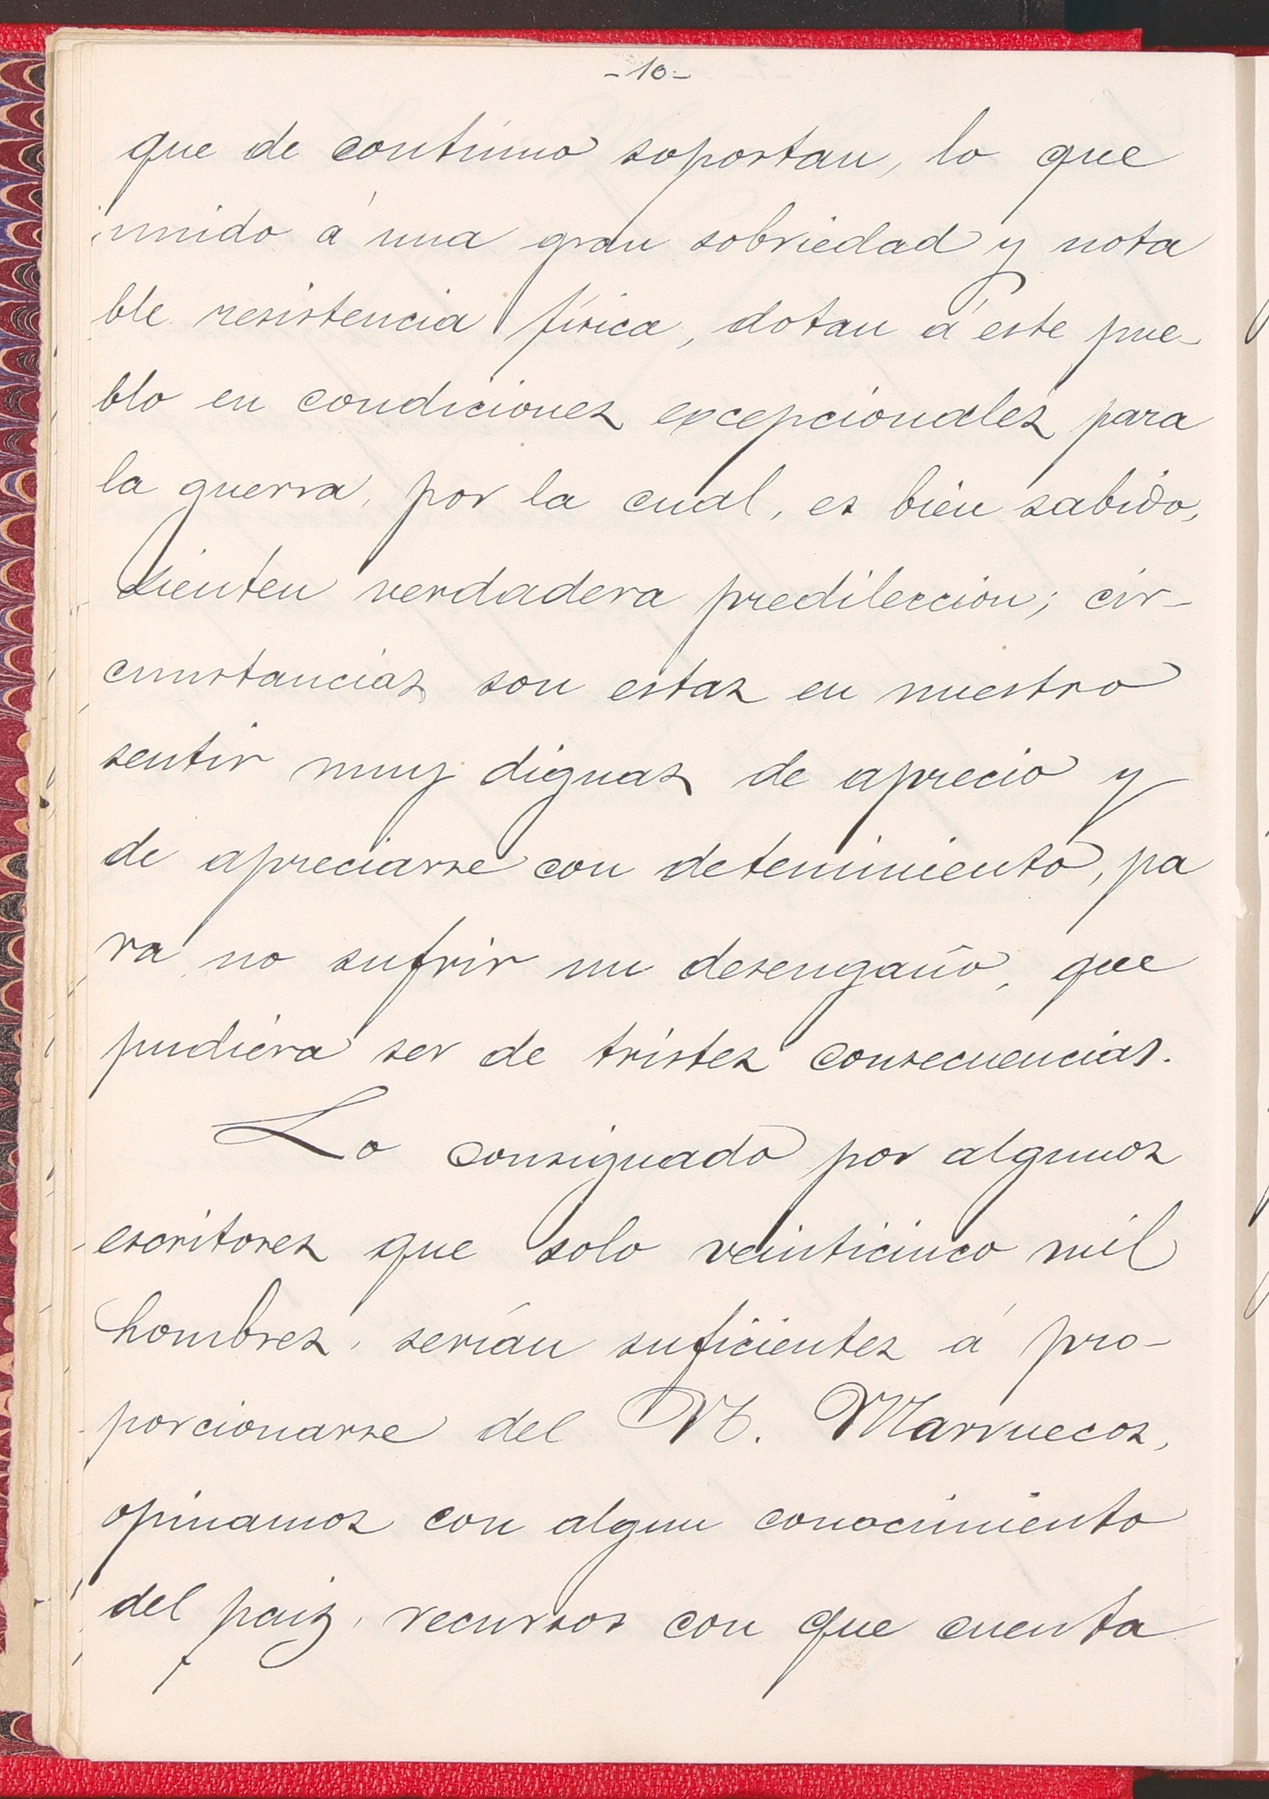 -10-
que de contínuo soportan, lo que
unido á una gran sobriedad y nota
ble resistencia física, dotan á este pue-
blo en condiciones excepcionales para
la guerra, por la cual, es bien sabido,
sienten verdadera predileccion; cir-
cunstancias son estas en nuestro
sentir muy dignas de aprecio y
de apreciarse con detenimiento, pa
ra no sufrir un desengaño, que
pudiera ser de tristes consecuencias.
Lo consignado por algunos
escritores que solo veinticinco mil
hombres, serían suficientes á pro-
porcionarse del N. Marruecos,
opinamos con algun conocimiento
del paiz, recursos con que cuenta